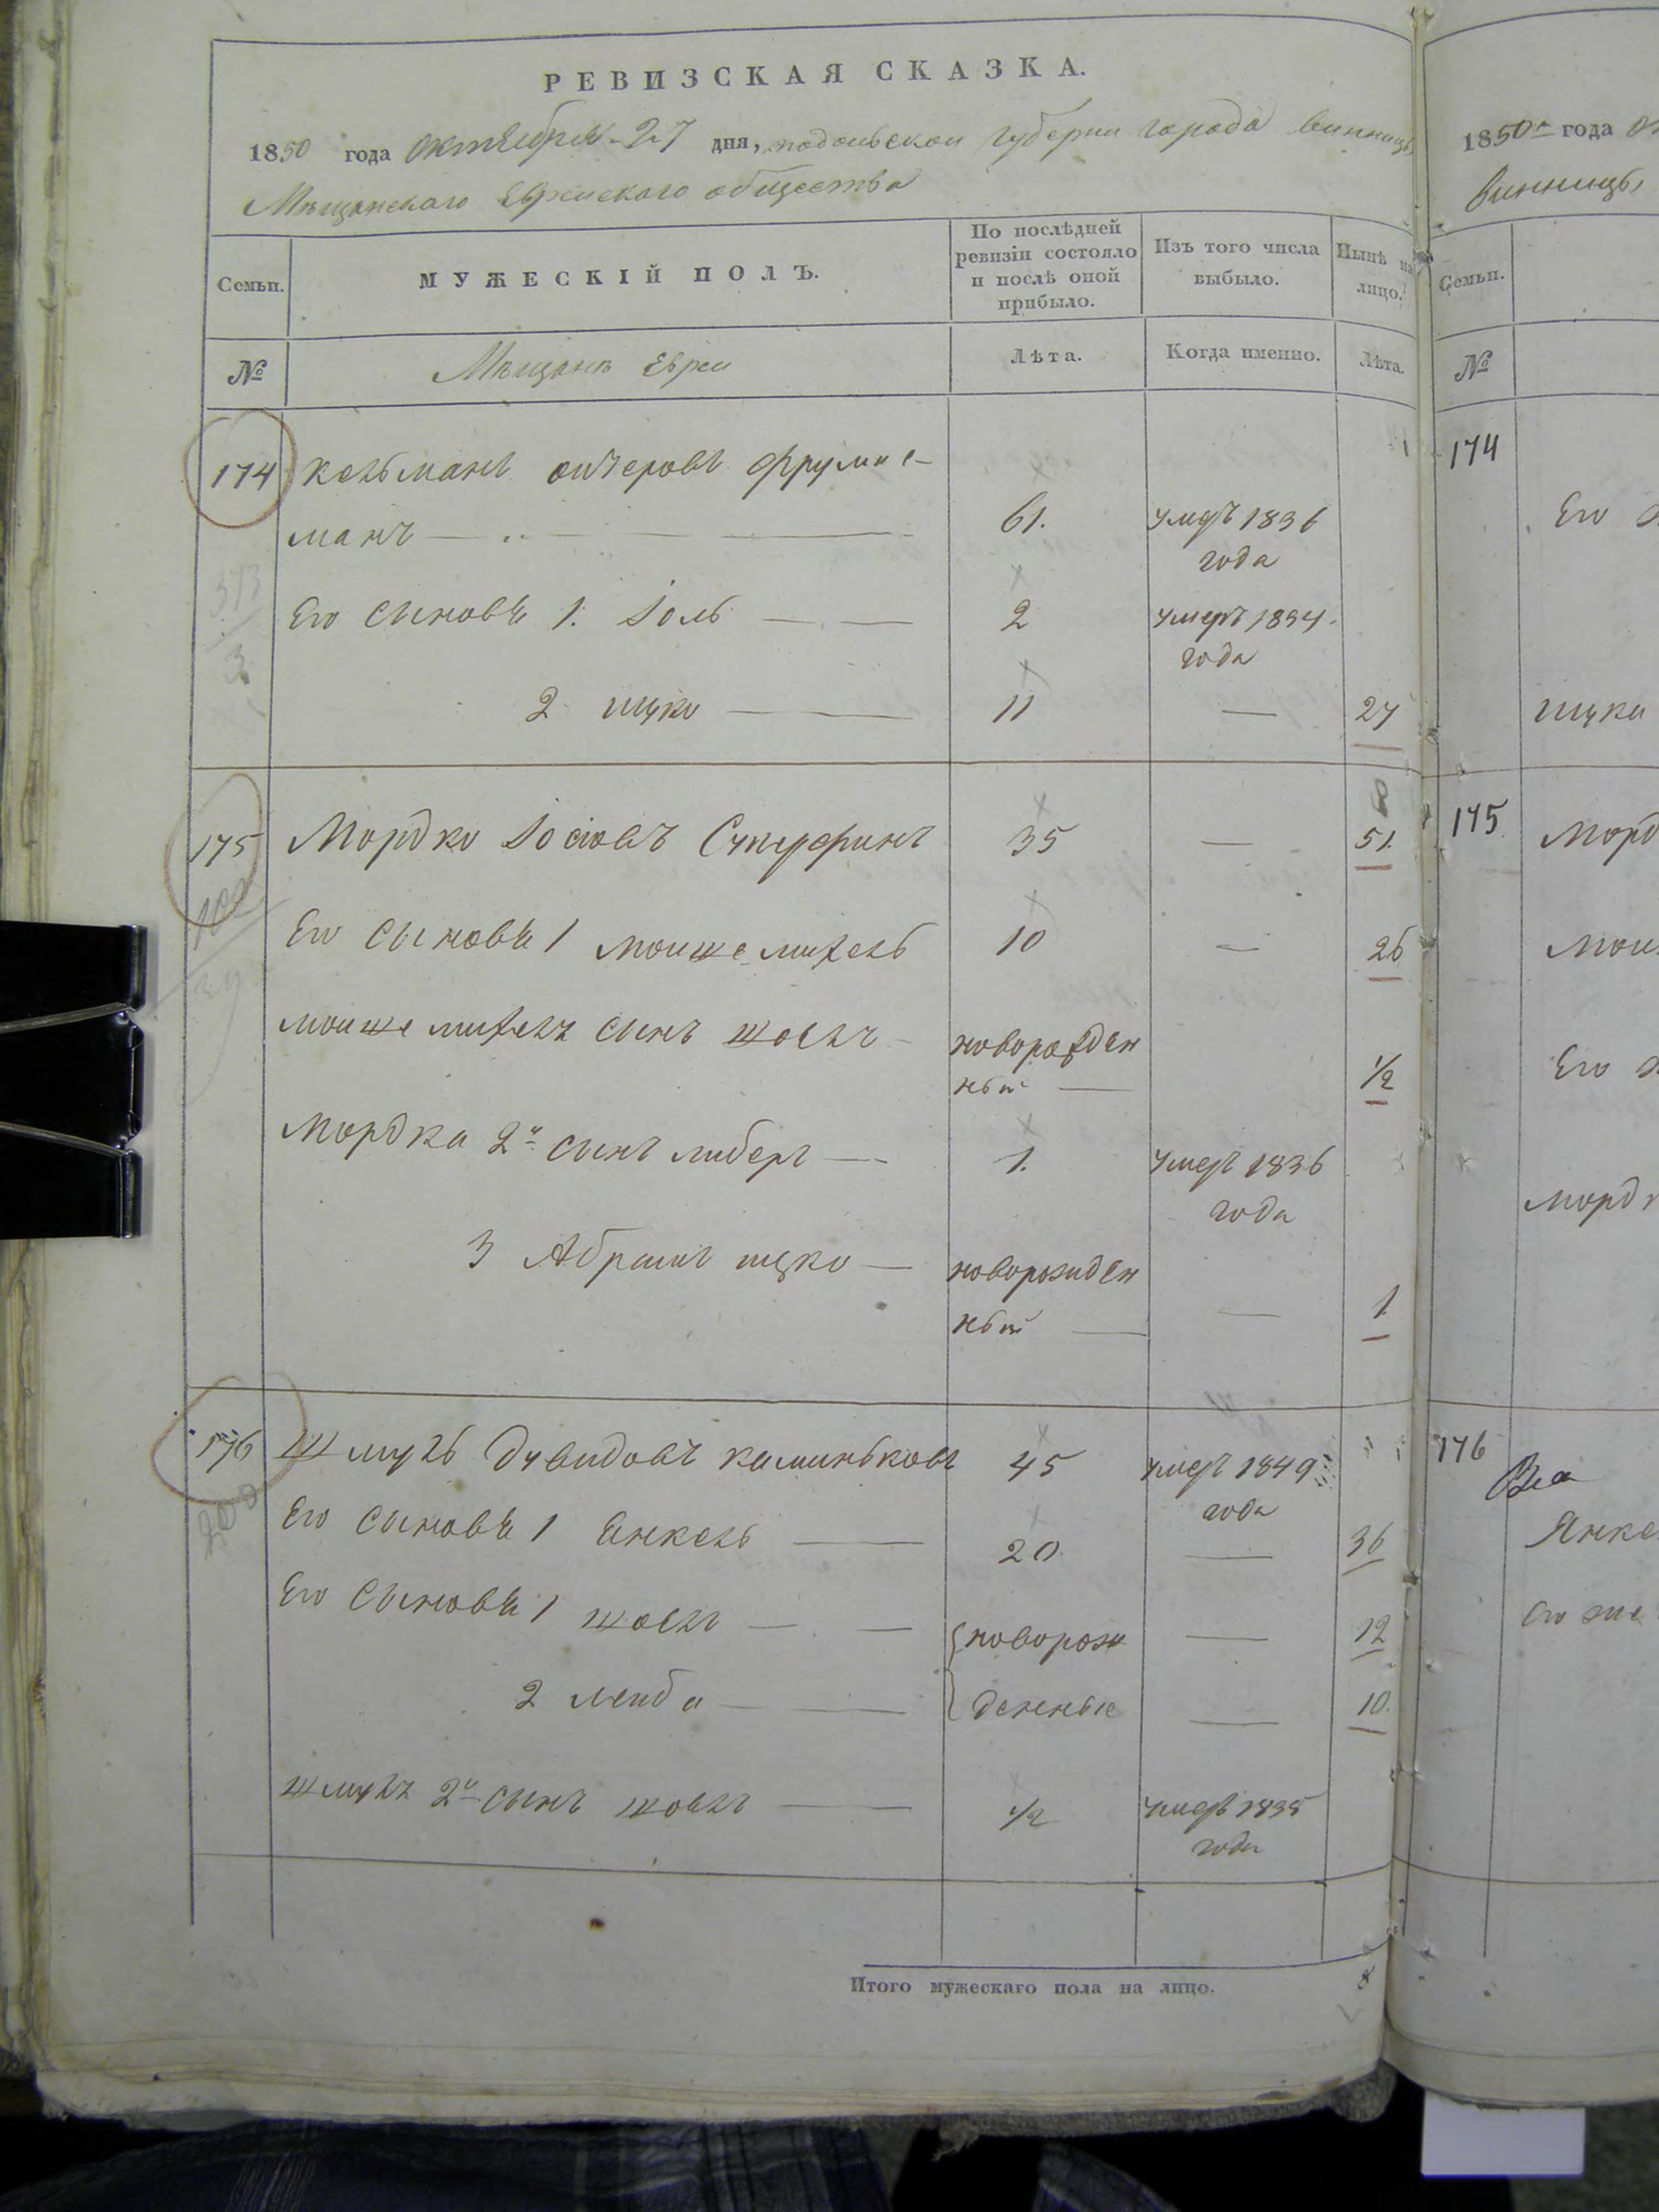 РЕВИЗСКАЯ СКАЗКА.
1850 года октября 27 дня, подольской губерни города винницы
Мѣщанскаго Еврейского общества
Семьи. МУЖЕСКІЙ ПОЛЪ. По послѣдней ревизіи состояло и послѣ оной прибыло. Изъ того числа выбыло. Нынѣ на лицо.
№ Мѣщанъ Евреи Лѣта. Когда именно. Лѣта.
174 Кельманъ ошеровъ Фрумие-
манъ 61. умеръ 1836
года
Его сыновья 1. Іоль 2 умеръ 1834
года
2 ицко 11 — 27
175 Мордко Іосіовъ Суперфинъ 35 — 51.
Его сыновья 1 мошие михель 10 — 26
мошие михеля сынъ шоель новорожден
ный 1/2
Мордка 2й сынъ либеръ 1. умеръ 1836
года
3 Абрамъ ицко новорожден
ный — 1
176 Шмуль Дувидовъ каминьковъ 45 умеръ 1849
года
Его сыновья 1 Янкель 20 — 36
Его сыновья 1 шоель новорож — 12
2 лейба денные — 10.
шмуля 2й сынъ шоель 1/2 умеръ 1835
года
Итого мужескаго пола на лицо. 8
1850 года
винницы
Семьи.
№
174
Его
ицка
175 Морд
Мош
Его
Морд
176
Янке
его же